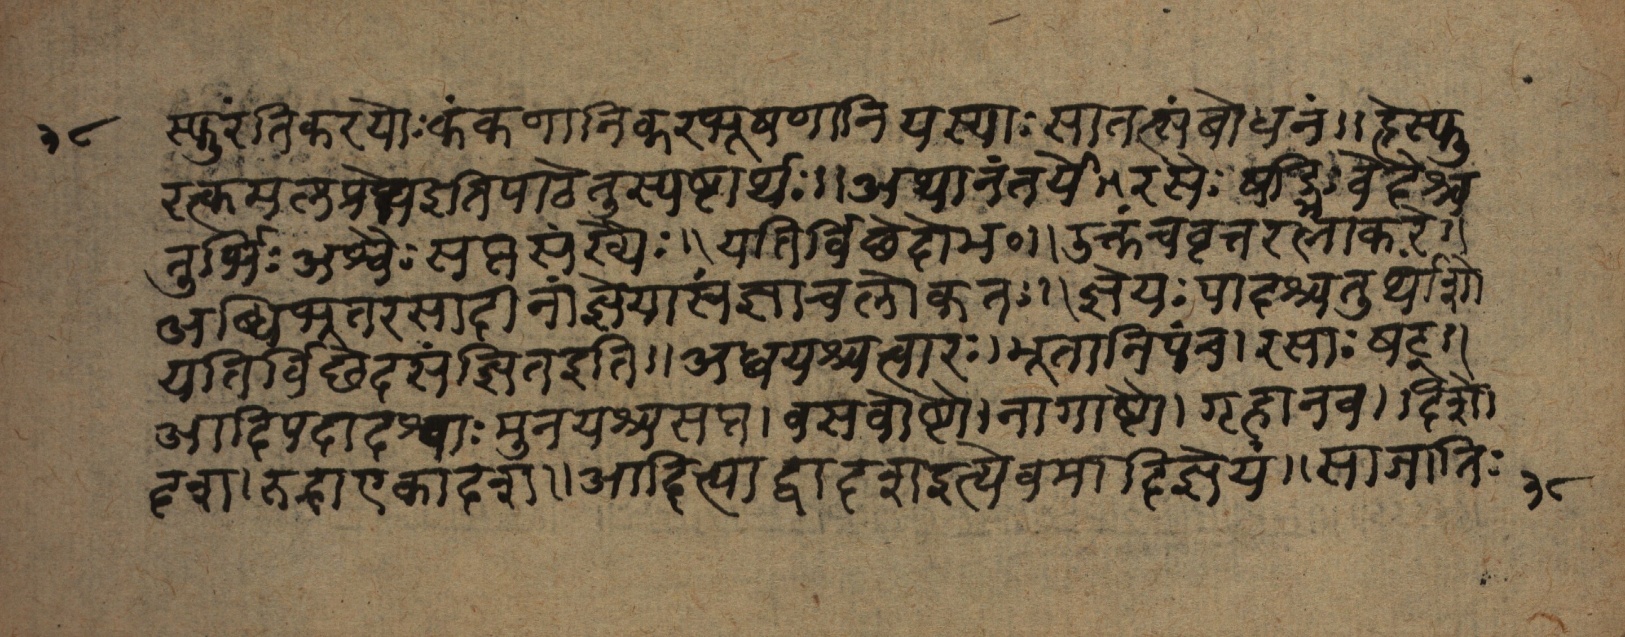 ३८ स्फुरंतिकरयोः कंकणानिकरभूषणानि यस्याः सातत्संबोधनं ॥ हेस्फु
रत्कमलप्रेष्यइतिपाठेतुस्पष्टार्थः ॥ अथानंतर्ये ॥ रसैः षड्भिः वेदैश्च
तुर्भिः अश्वैः सप्तसंख्यैः ॥ यतिर्विछेदोभ० ॥ उक्तंचवृत्तरत्नाकरे ॥
अब्धिभूतरसादीनांज्ञेयासंज्ञाचलोकतः ॥ ज्ञेयः पादश्चतुर्थांशो
यतिर्विछेदसंज्ञितइति ॥ अब्धयश्चत्वारः । भूतानिपंच । रसाः षट् ॥
आदिपदादश्वाः मुनयश्चसप्त । वसवोष्टौ । नागाष्टौ । गृहानव । दिशो
दश । रुद्राएकादश ॥ आदित्याद्वादशइत्येवमादिज्ञेयं ॥ साजातिः ३८